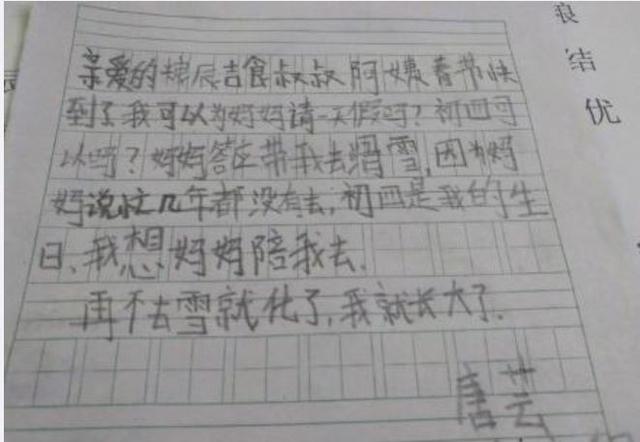 亲爱的糖辰吉食叔叔阿姨春节快
到了我可以为妈妈请一天假吗？初四可
以吗？妈妈答应带我去滑雪,因为妈
妈说这几年都没有去,初四是我的生
日、我想妈妈陪我去.
再不去雪就化了,我就长大了.
唐芸
浪
结
优